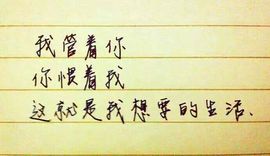 我管着你
你惯着我
这就是我想要的生活.